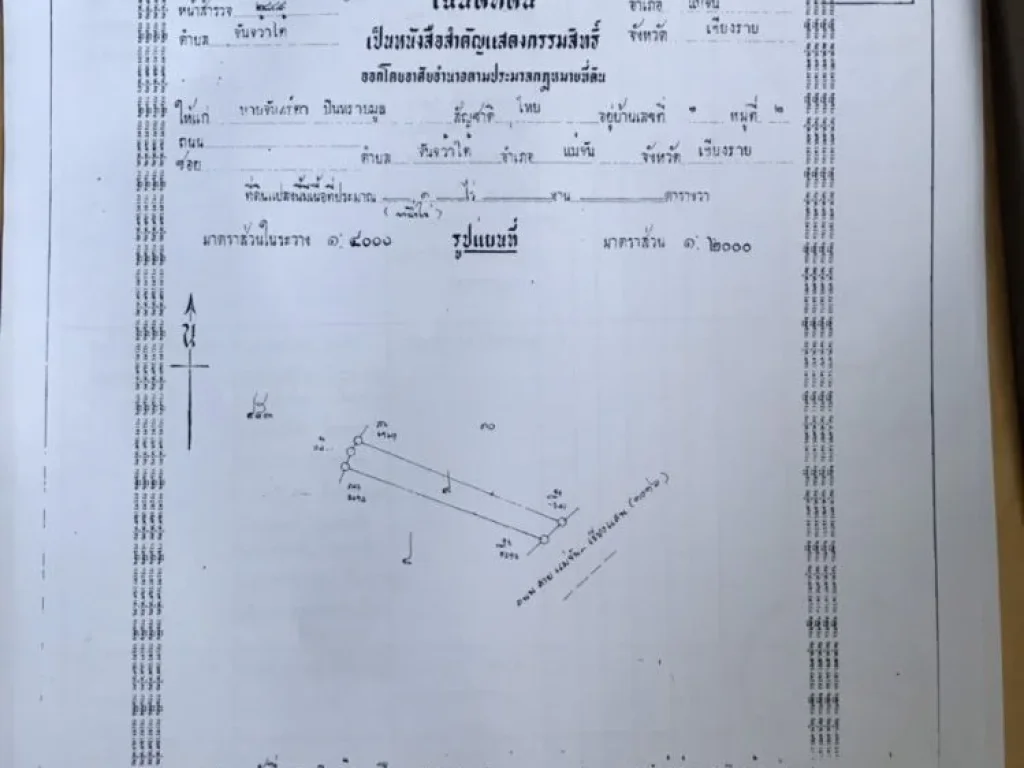 หน้าสำรวจ ๒๘๔๘
โฉนดที่ดิน
อำเภอ แม่จัน
ตำบล จันจว้าใต้
เป็นหนังสือสำคัญแสดงกรรมสิทธิ์
จังหวัด เชียงราย
ออกโดยอาศัยอำนาจตามประมวลกฎหมายที่ดิน
ให้แก่ นายจันทร์ตา ปินทรายมูล สัญชาติ ไทย อยู่บ้านเลขที่ หมู่ที่ ๒
ถนน
ซอย ตำบล จันจว้าใต้ อำเภอ แม่จัน จังหวัด เชียงราย
ที่ดินแปลงนี้มีเนื้อที่ประมาณ ๑ ไร่ งาน ตารางวา
(หนึ่งไร่)
มาตราส่วนในระวาง ๑:๔๐๐๐
รูปแผนที่
มาตราส่วน ๑:๒๐๐๐
น
๕๔๓
๑๐
๙
๘
ถนน สาย แม่จัน - เชียงแสน (๑๐๑๖)